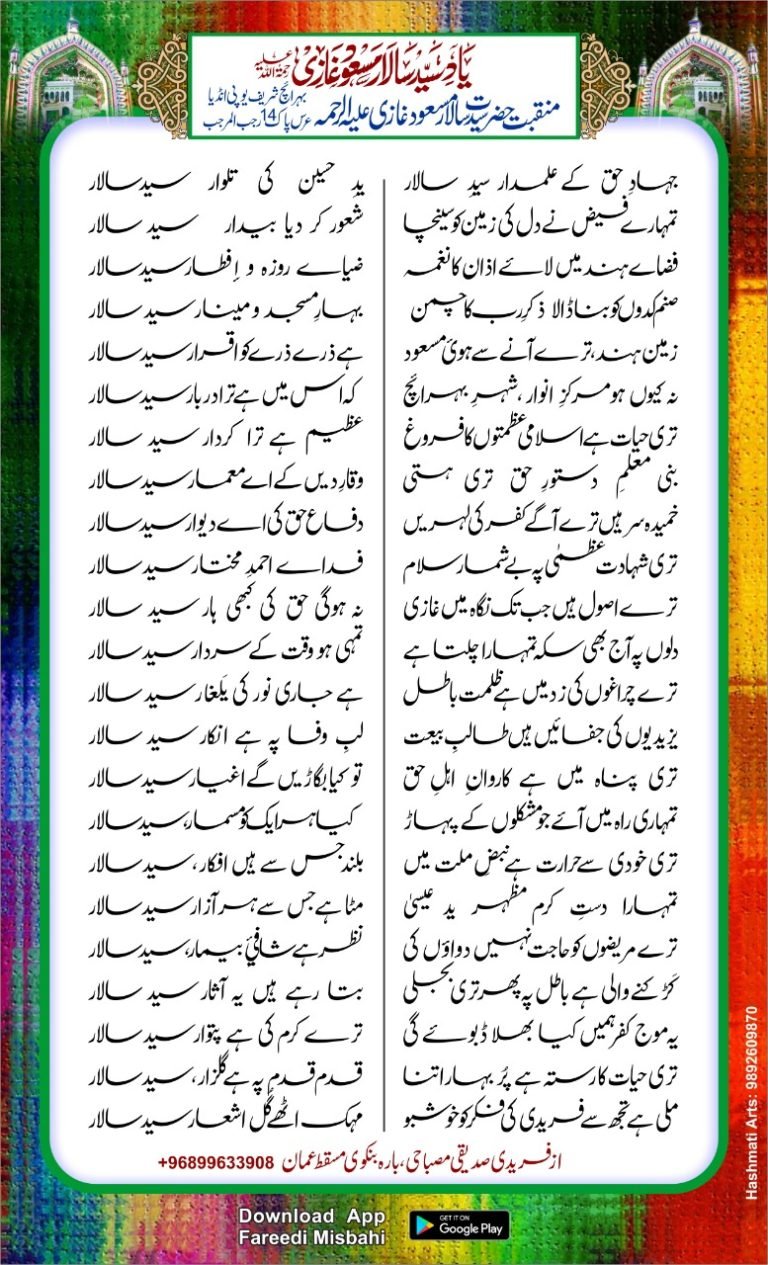 یادِ سید سالار مسعود غازی رحمۃ اللہ علیہ
منقبت حضرت سید سالار مسعود غازی علیہ الرحمہ
بہرائچ شریف یوپی انڈیا
عرس پاک 14 رجب المرجب
جہادِ حق کے علمدار سیدِ سالار یدِ حسین کی تلوار سیدسالار
تمہارے فیض نے دل کی زمین کو سینچا شعور کر دیا بیدار سید سالار
فضاے ہند میں لائے اذان کا نغمہ ضیاے روزہ و اِفطار سیدسالار
صنم کدوں کو بنا ڈالا ذکرِ رب کا چمن بہارِ مسجد و مینار سید سالار
زمین ہند، ترے آنے سے ہوئی مسعود ہے ذرے ذرے کو اقرار سیدسالار
نہ کیوں ہو مرکزِ انوار، شہرِ بہرائچ کہ اس میں ہے ترا دربار سیدسالار
تری حیات ہے اسلامی عظمتوں کا فروغ عظیم ہے ترا کردار سید سالار
بنی معلمِ دستورِ حق تری ہستی وقارِ دیں کے اے معمار سیدسالار
خمیدہ سر ہیں ترے آگے کفر کی لہریں دفاعِ حق کی اے دیوار سیدسالار
تری شہادت عظمٰی پہ بے شمار سلام فداے احمدِ مختار سیدسالار
ترے اصول ہیں جب تک نگاہ میں غازی نہ ہوگی حق کی کبھی ہار سید سالار
دلوں پہ آج بھی سکہ تمہارا چلتا ہے تمہی ہو وقت کے سردار سیدسالار
ترے چراغوں کی زد میں ہے ظلمت باطل ہے جاری نور کی یَلغار سیدسالار
یزیدیوں کی جفائیں ہیں طالبِ بیعت لبِ وفا پہ ہے انکار سید سالار
تری پناہ میں ہے کاروانِ اہلِ حق تو کیا بگاڑیں گے اغیار سیدسالار
تمہاری راہ میں آئے جو مشکلوں کے پہاڑ کیا ہر ایک کو مسمار، سیدسالار
تری خودی سے حرارت ہے نبضِ ملت میں بلند جس سے ہیں افکار، سیدسالار
تمہارا دستِ کرم مظہر ید عیسیٰ مٹا ہے جس سے ہر آزار سیدسالار
ترے مریضوں کو حاجت نہیں دواؤں کی نظر ہے شافیِٔ بیمار، سیدسالار
کَڑکنے والی ہے باطل پہ پھر تری بجلی بتا رہے ہیں یہ آثار سید سالار
یہ موج کفر ہمیں کیا بھلا ڈبوئے گی ترے کرم کی ہے پتوار سیدسالار
تری حیات کا رستہ ہے پُر بہار اتنا قدم قدم پہ ہے گلزار، سیدسالار
ملی ہے تجھ سے فریدی کی فکر کو خوشبو مہک اٹھے گُل اشعار سیدسالار
از فریدی صدیقی مصباحی، بارہ بنکوی مسقط عمان +96899633908
Download App
Fareedi Misbahi
GET IT ON
Google Play
Hashmati Arts: 9892609870